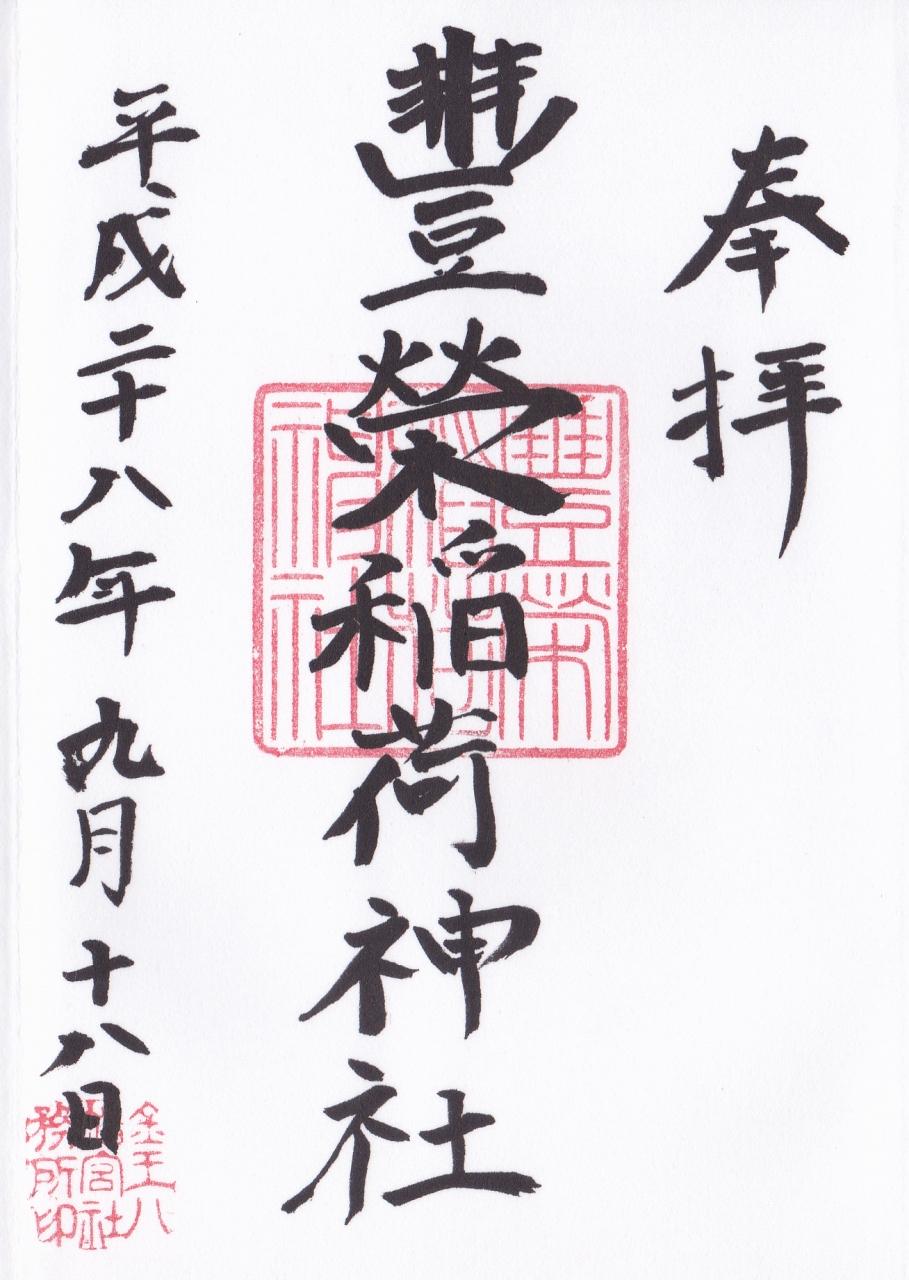 奉拝
豐榮稲荷神社
平成二十八年九月十八日
豊栄
稲荷
神社
金王八
幡宮社
務所印